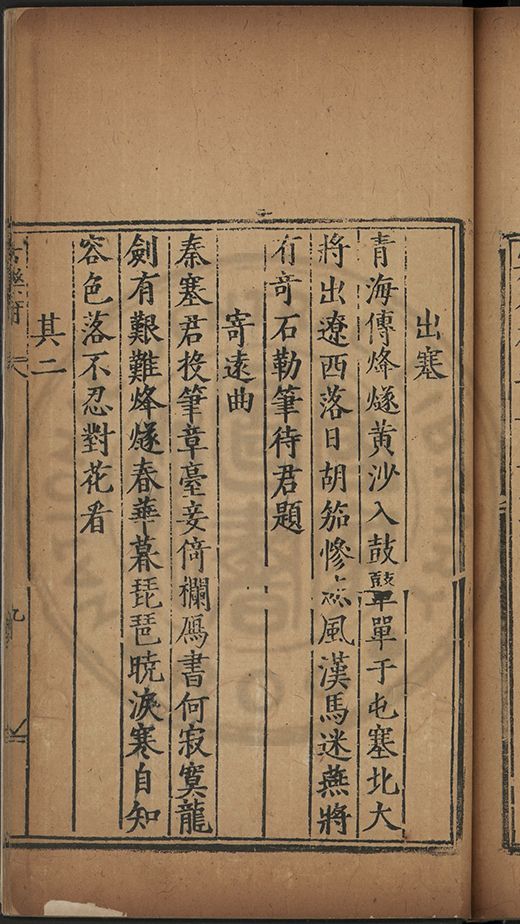 出塞
青海傳烽燧黃沙入鼓鼙單于屯塞北大
將出遼西落日胡笳慘風漢馬迷燕將
有奇石勒筆待君題
寄遠曲
秦塞君投筆章臺妾倚欄鴈書何寂寞龍
劍有艱難烽燧春華暮琵琶曉淚寒自知
容色落不忍對花看
其二
古樂府
九